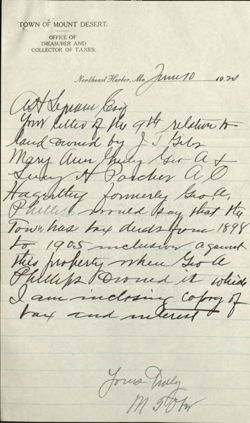 TOWN OF MOUNT DESERT.
OFFICE OF
TREASURER AND
COLLECTOR OF TAXES.
Northeast Harbor, Me., June 10 192
A H Esq
Your letter of the 9th relative to
land owned by J T
Mary Ann Geo A &
H A C
Hagerthy formerly Geo A.
Phillips would say that the
Town has tax deeds from 1898
to 1905 inclusive against
this property when Geo A
Phillips owned it which
I am inclosing copy of
tax and interest
Yours Truly
M